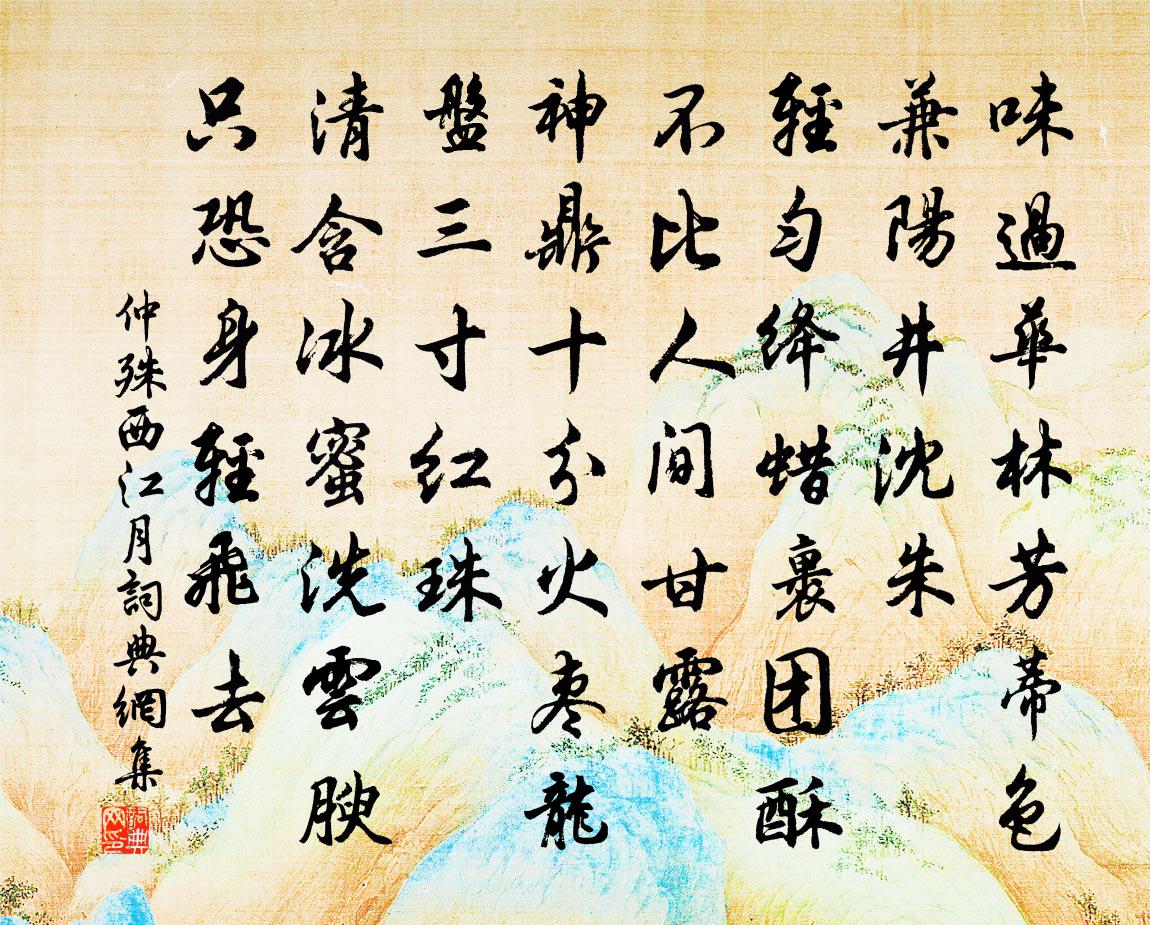 味過華林芳蒂色
兼陽井沈朱
輕勻绛蜡裹团酥
不比人间甘露
神鼎十分火枣龍
盤三寸红珠
清含冰蜜洗雲腴
只恐身輕飛去
仲殊西江月詞典網集